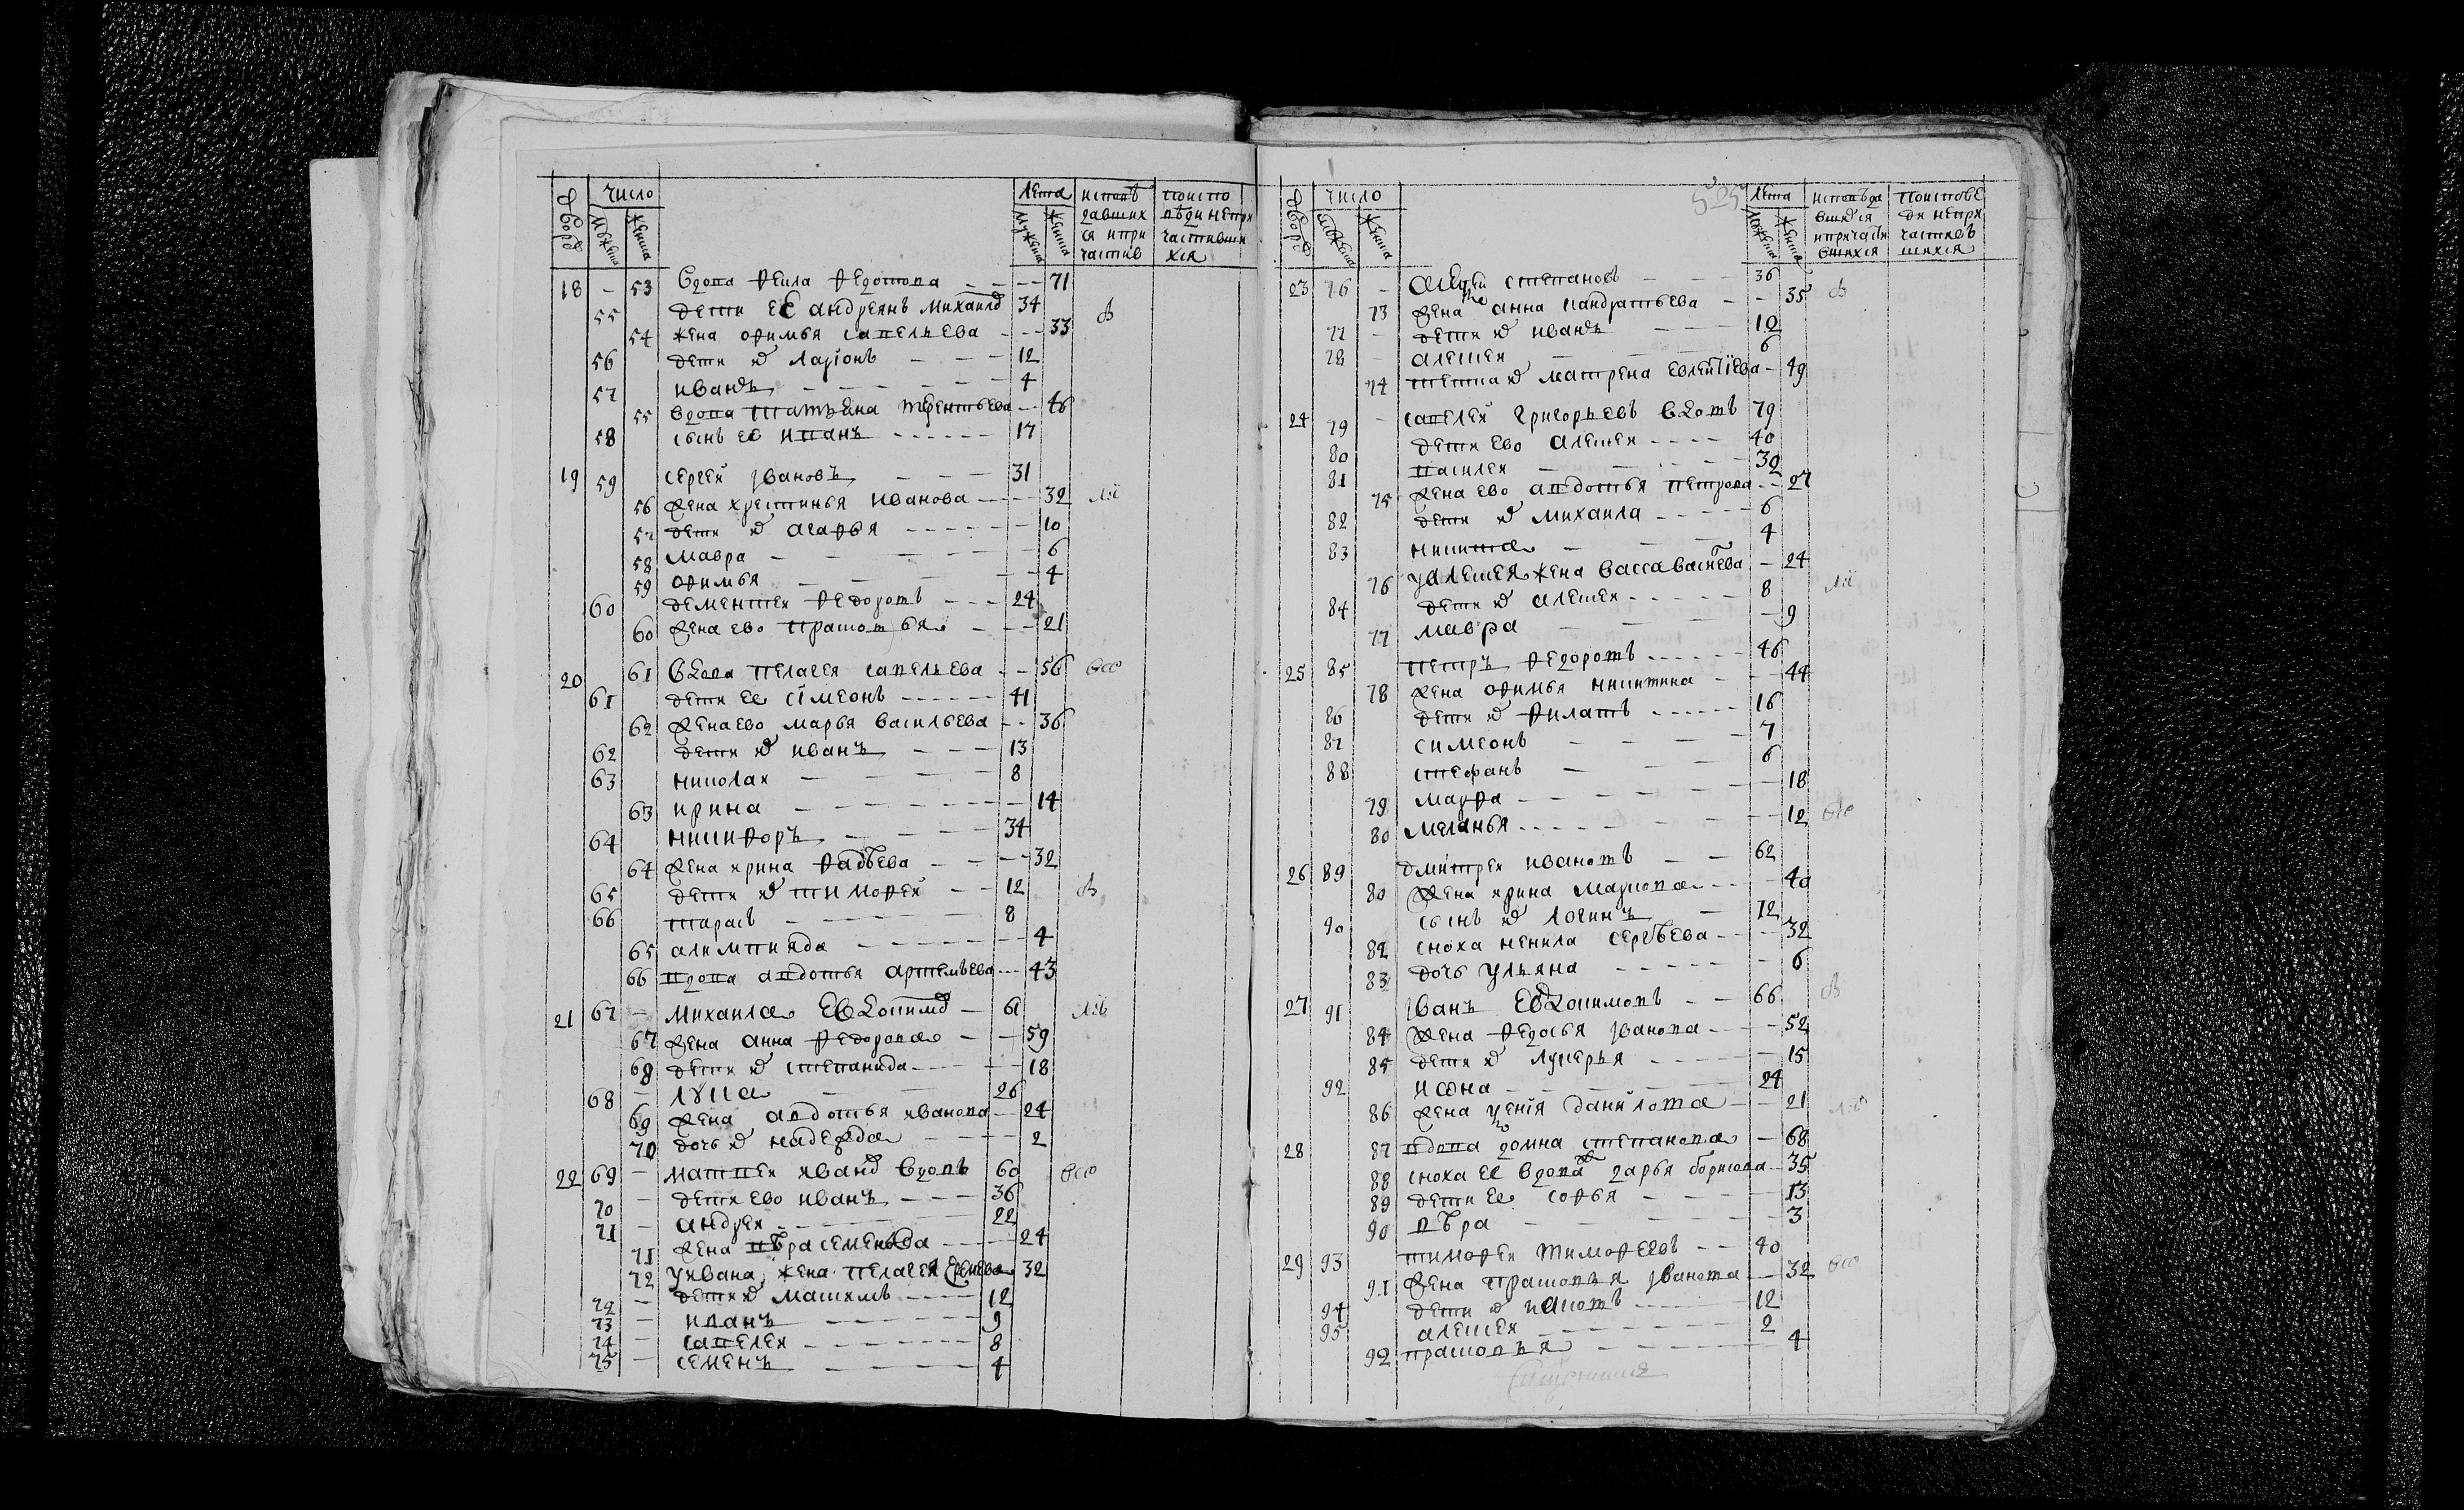 дворъ число лета исповѣдавшихся и причастив по испо вѣди не причастившихся
мужеска женска мужеска женска
18 - 53 вдова Фекла Федотова - - 71
55 дети ее Андреянъ Михаилов 34
54 жена Офимья Савельева - - 33
56 дети их Ларiонъ - - - 12
57 Иванъ - - - 4
55 вдова Татьяна Терентьева - - 46
58 сынъ ее Иванъ - - - 17
19 59 Сергей Iвановъ - - 31
56 жена Хрестинья Иванова - - 32
57 дети их Агафья - - - 10
58 Мавра - - - 6
59 Офимья - - - 4
60 Дементей Федоровъ - - - 24
60 жена ево Прасковья - - 21
20 61 вдова Пелагея Савельева - - 56
61 дети ее Сiмеонъ - - - 41
62 жена ево Марья Васильева - - 36
62 дети их Иванъ - - - 13
63 Николай - - - 8
63 Ирина - - - 14
64 Никифоръ - - - 34
64 жена Ирина Фадѣева - - - 32
65 дети их Тимофей - - 12
66 Тарасъ - - - 8
65 Алимпияда - - - 4
66 вдова Авдотья Артемьева - - 43
21 67 - Михаила Евдокимов - 61
67 жена Анна Федорова - - 59
68 дети их Степанида - - - 18
68 - Лука - 26
69 жена Авдотья Иванова - - 24
70 дочь их Надежда - - - 2
22 69 - Матвей Иванов вдовъ 60
70 - дети ево Иванъ - - - 36
71 - Андрей - - - 22
71 жена Вѣра Семенова - - - 24
72 у Ивана жена Пелагея 32
72 - дети их Максимъ - - - 12
73 - Иванъ - - - 9
74 - Савелей - - - 8
75 - Семенъ - - - 4
525
дворъ число лета исповѣдавшихся и причастившихся по исповеди не причастившихся
мужеска женска мужеска женска
23 76 - Сергей Степановъ - - - 36
73 жена Анна Кандратьева - - 35
77 - дети их Иванъ - - - 10
78 - Алексей - - - 6
74 теща их Матрена - 49
24 79 - Савелей Григорьевъ вдовъ 79
80 дети ево Алексей - - - 40
81 Василей - - - 30
75 жена ево Авдотья Петрова - - 27
82 дети их Михаила - - - 6
83 Никита - - - 4
76 у Алексея жена Васса - 24
84 дети их Алексей - - - 8
77 Мавра - - - 9
25 85 Петръ Федоровъ - - - 46
78 жена Офимья Никитина - - 44
86 дети их Филатъ - - - 16
87 Симеонъ - - - 7
88 Стефанъ - - - 6
79 Марфа - - - 18
80 Меланья - - - 12
26 89 Дмитрей Ивановъ - - 62
80 жена Ирина Маркова - - - 40
90 сынъ их Логинъ - 12
82 сноха Ненила Сергѣева - - - 32
83 дочь Ульяна - - - 6
27 91 Iванъ Евдокимовъ - - 66
84 жена Федосья Iванова - - - 52
85 дети их Лукерья - - - 15
92 Иона - - - 24
86 жена Данiлова - - 21
28 87 вдова Домна Степанова - 68
88 сноха ее вдова Дарья Борисова - - 35
89 дети ее Софья - - - 13
90 Вѣра - - - 3
29 93 Тимофей Тимофеевъ - - 40
91 жена Прасковья Iванова - - 32
94 дети их Иаковъ - - - 12
95 Алексей - - - 2
92 Прасковья - - - 4